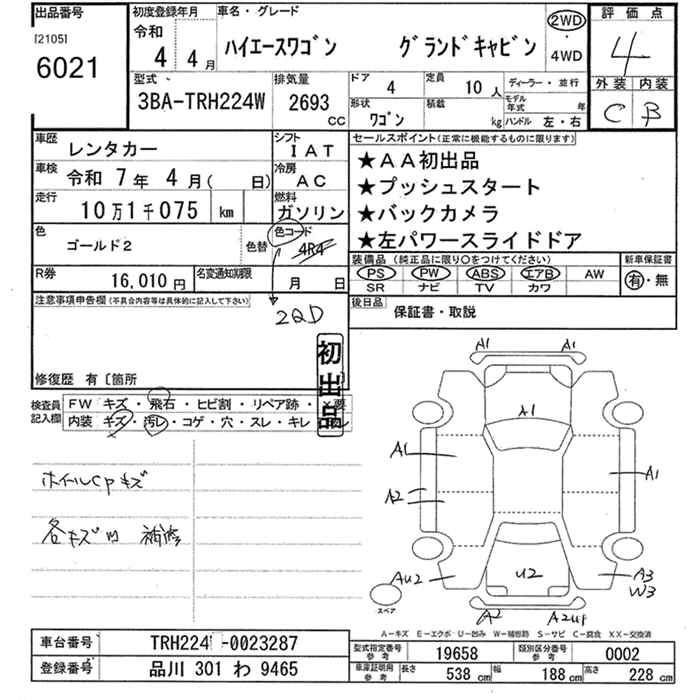 出品番号
[2105]
6021
初度登録年月
令和
4 4月
車名・グレード
ハイエースワゴン グランドキャビン
2WD
・
4WD
評価点
4
外装 内装
C B
型式
3BA-TRH224W
排気量
2693 CC
ドア 4
定員 10人
形状 ワゴン
積載 kg
ディーラー・並行
モデル年式 年
ハンドル 左・右
車歴 レンタカー
シフト IAT
車検 令和 7年 4月( 日)
冷房 AC
走行 10万1千075 km
燃料 ガソリン
色 ゴールド2
色替
色コード 4R4
2QD
R券 16,010円
名変通知期限 月 日
セールスポイント(正常に機能するものに限ります)
★AA初出品
★プッシュスタート
★バックカメラ
★左パワースライドドア
装備品(純正品に限り○をつけてください)
PS PW ABS エアB AW
SR ナビ TV カワ
新車保証書
有・無
後日品 保証書・取説
注意事項申告欄(不具合内容等は具体的に記入して下さい)
修復歴 有〔箇所 〕
初出品
検査員記入欄
FW キズ・飛石・ヒビ割・リペア跡・×要
内装 キズ・汚レ・コゲ・穴・スレ・キレ
ホイールCPキズ
各キズ凹 補修
A1
A1
A1
A1
A1
A2
AU2
U2
A3
W3
A2
A2UP
スペア
A-キズ E-エクボ U-凹み W-補修跡 S-サビ C-腐食 XX-交換済
車台番号 TRH224 -0023287
登録番号 品川 301 わ 9465
型式指定番号 参考 19658
類別区分番号 参考 0002
車庫証明用 参考 長さ 538 cm 幅 188 cm 高さ 228 cm